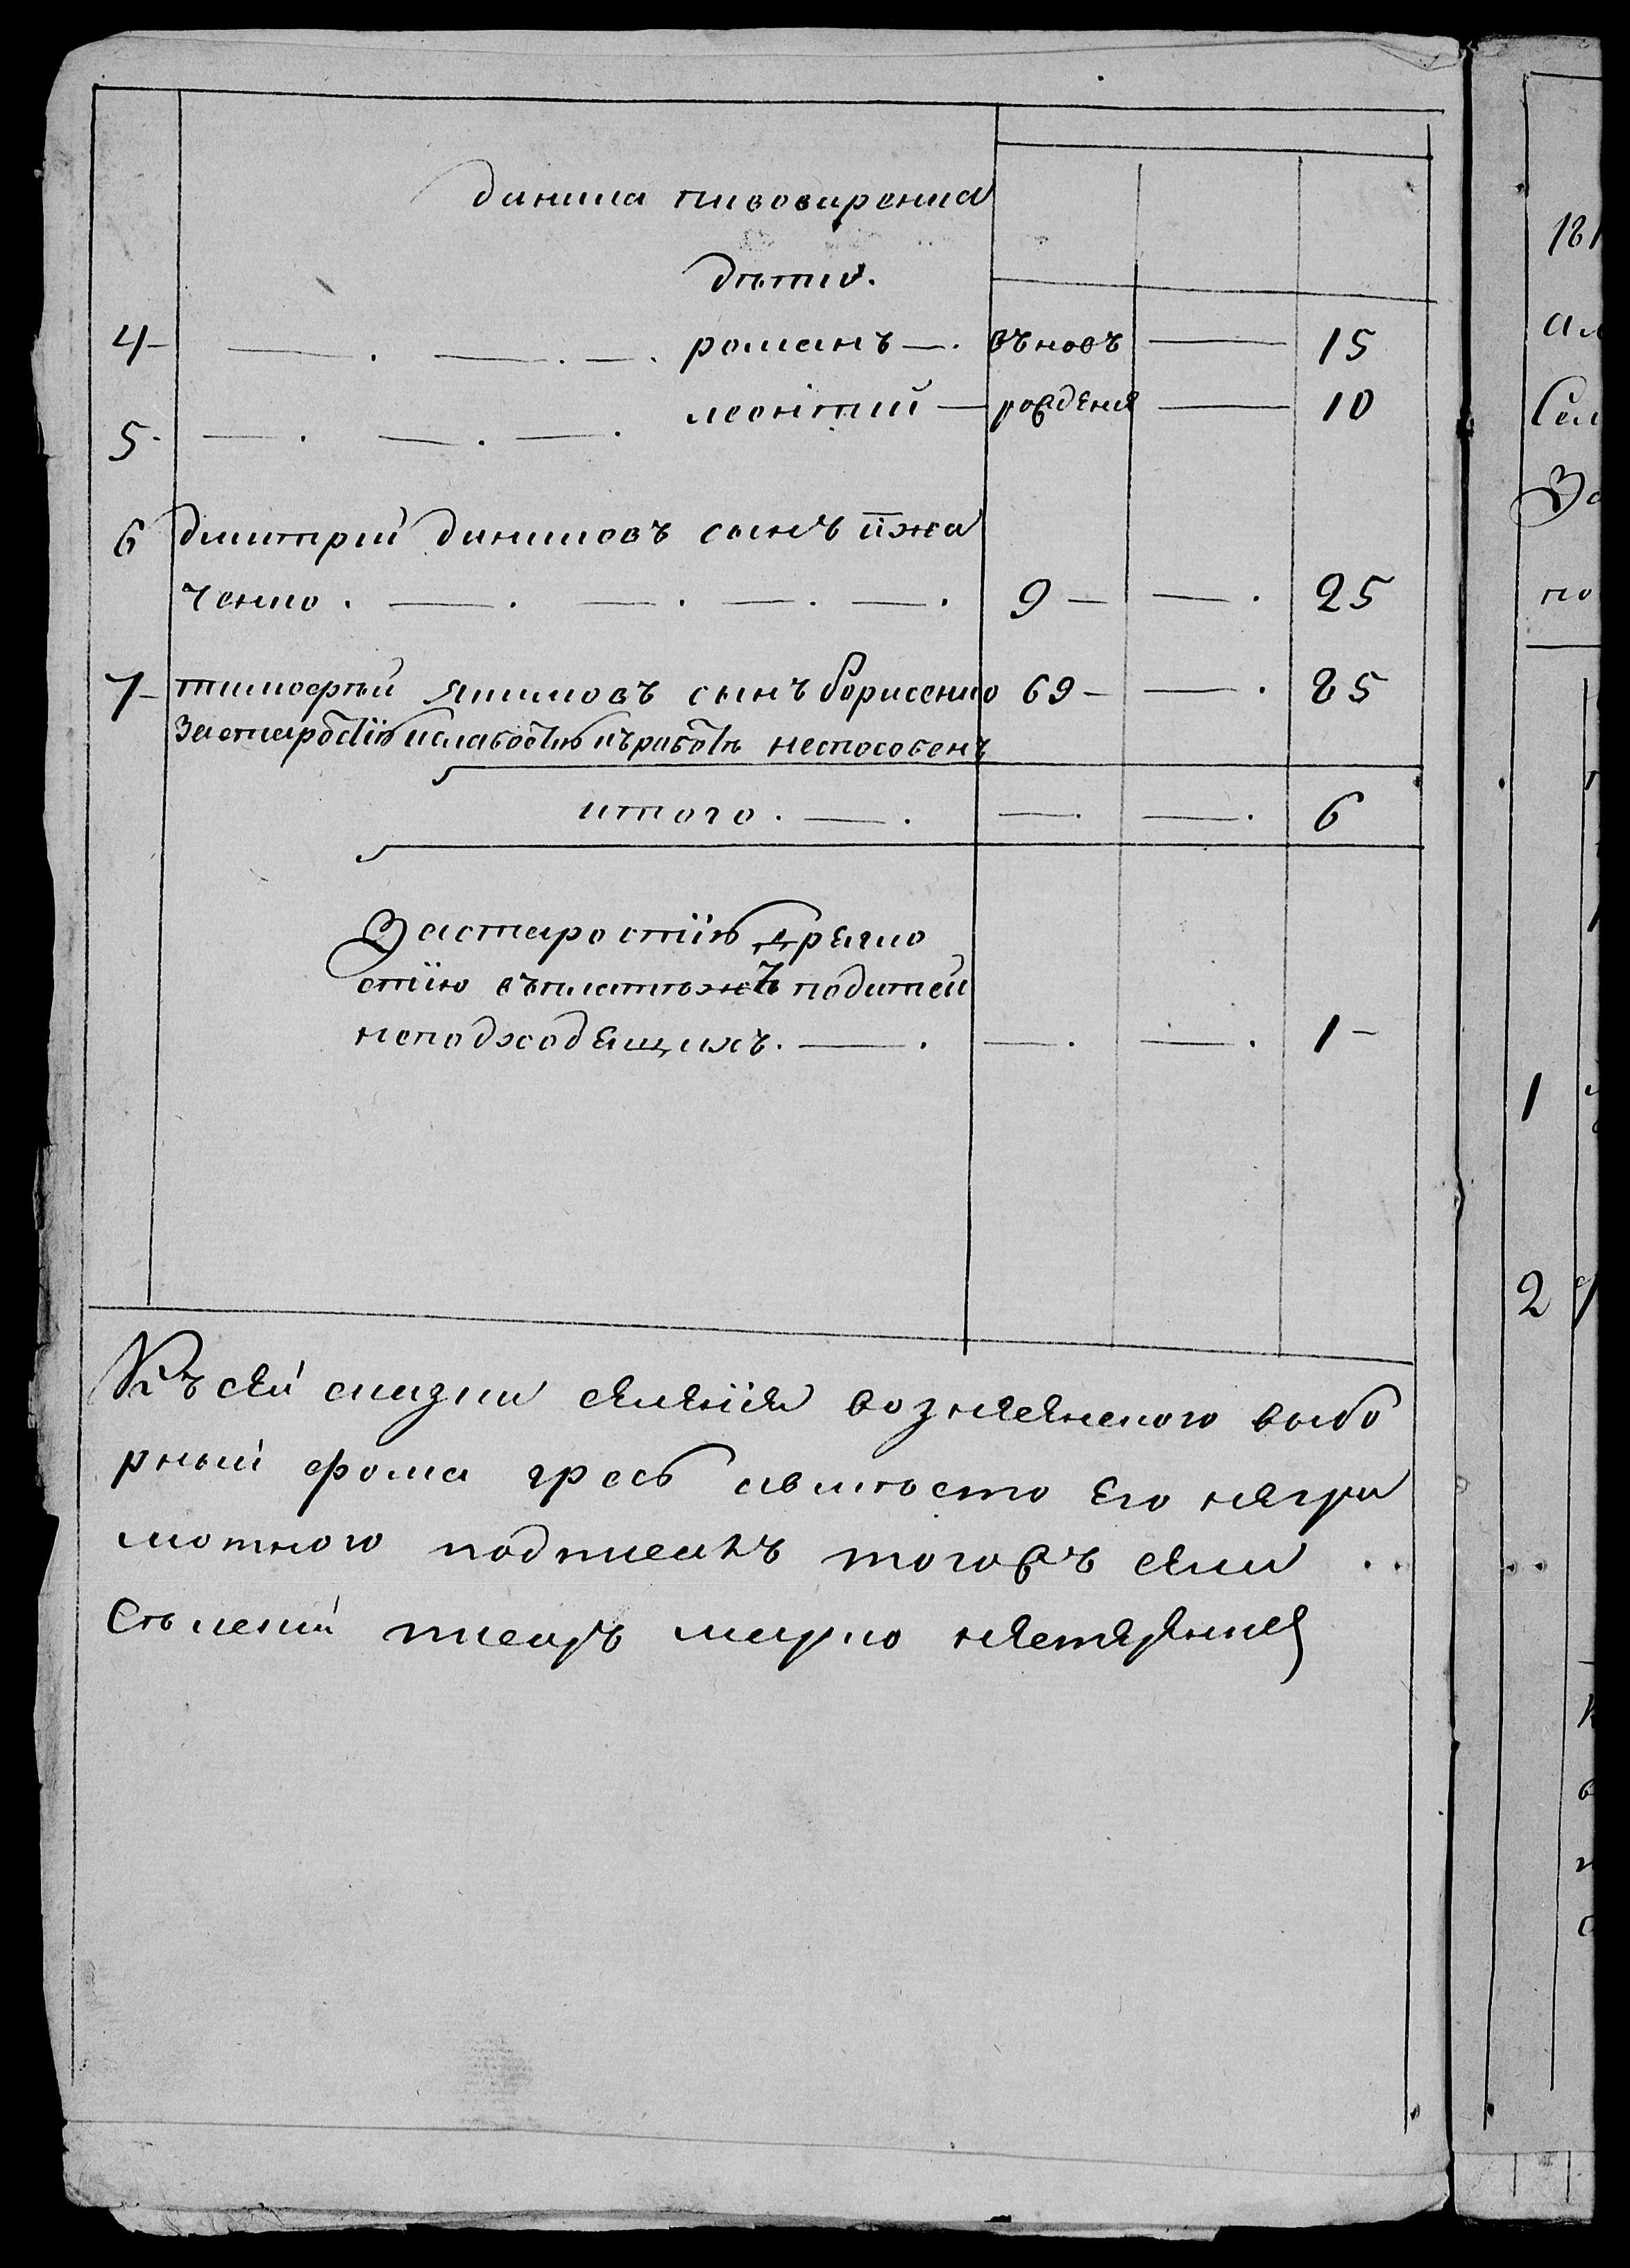 данила пивоваренка
дѣти.
4 — . — . — . романъ — . въновъ — 15
5. — . — . — . леонтий — рождения — 10
6 дмитрий даниловъ сынъ пжа
ченко . — . — . — . — . 9 — — . 25
7 — тимофѣй якимовъ сынъ борисенко 69 — — . 85
застаростїю ислабостїю кѣработѣ неспособенъ
итого . — . — . — . 6
Застаростїю дрягло
стїю въплатѣжъ податей
неподходящихъ . — . — . — . 1 —
Къ сей сказки селения вознесенского выбо
рный фома гресь авместо его негра
мотного подписалъ тогожъ сели
Сѣльский писарь марко нестеренко
181
Сел
За
по
1
2